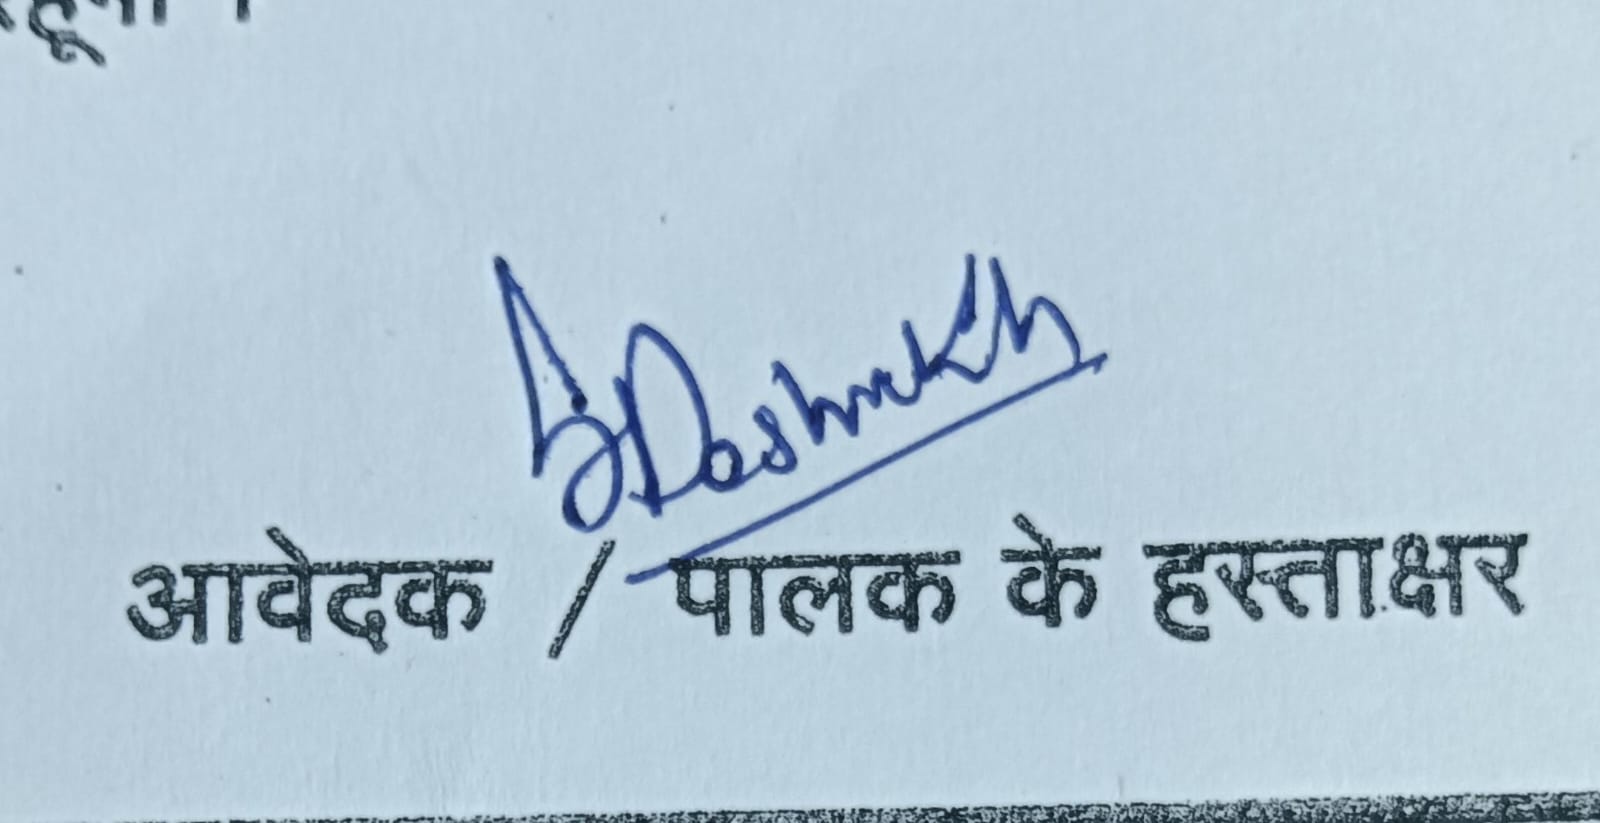 Deshmukh
आवेदक / पालक के हस्ताक्षर